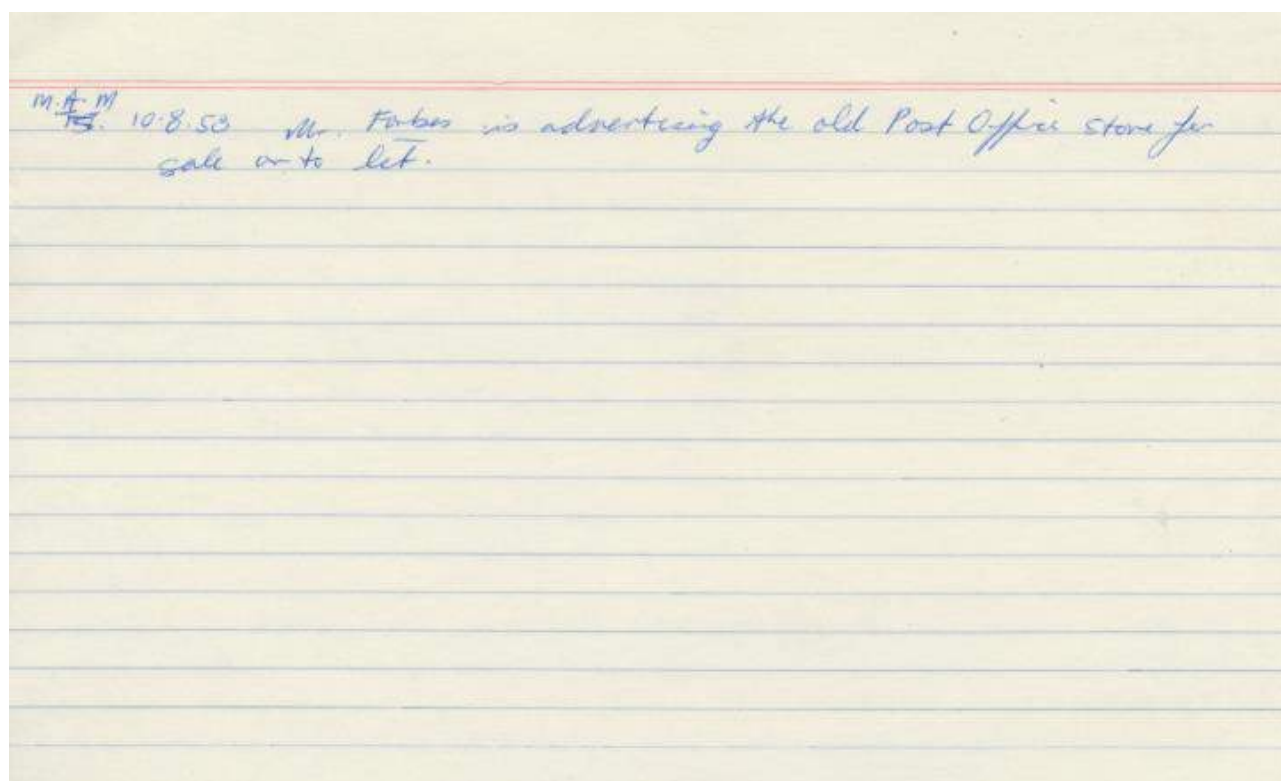 M.A.M
10.8.53 Mr. Forbes is advertising the old Post Office store for
sale or to let.